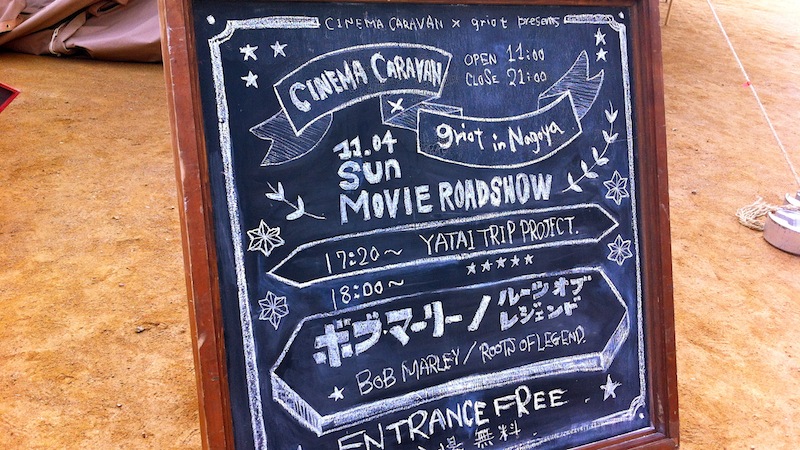 CINEMA CARAVAN × griot presents
OPEN 11:00
CLOSE 21:00
CINEMA CARAVAN
×
griot in Nagoya
11.04
SUN
MOVIE ROADSHOW
17:20～ YATAI TRIP PROJECT.
18:00～
ボブ・マーリー／ルーツオブ
レジェンド
BOB MARLEY / ROOTS OF LEGEND.
ENTRANCE FREE
無料